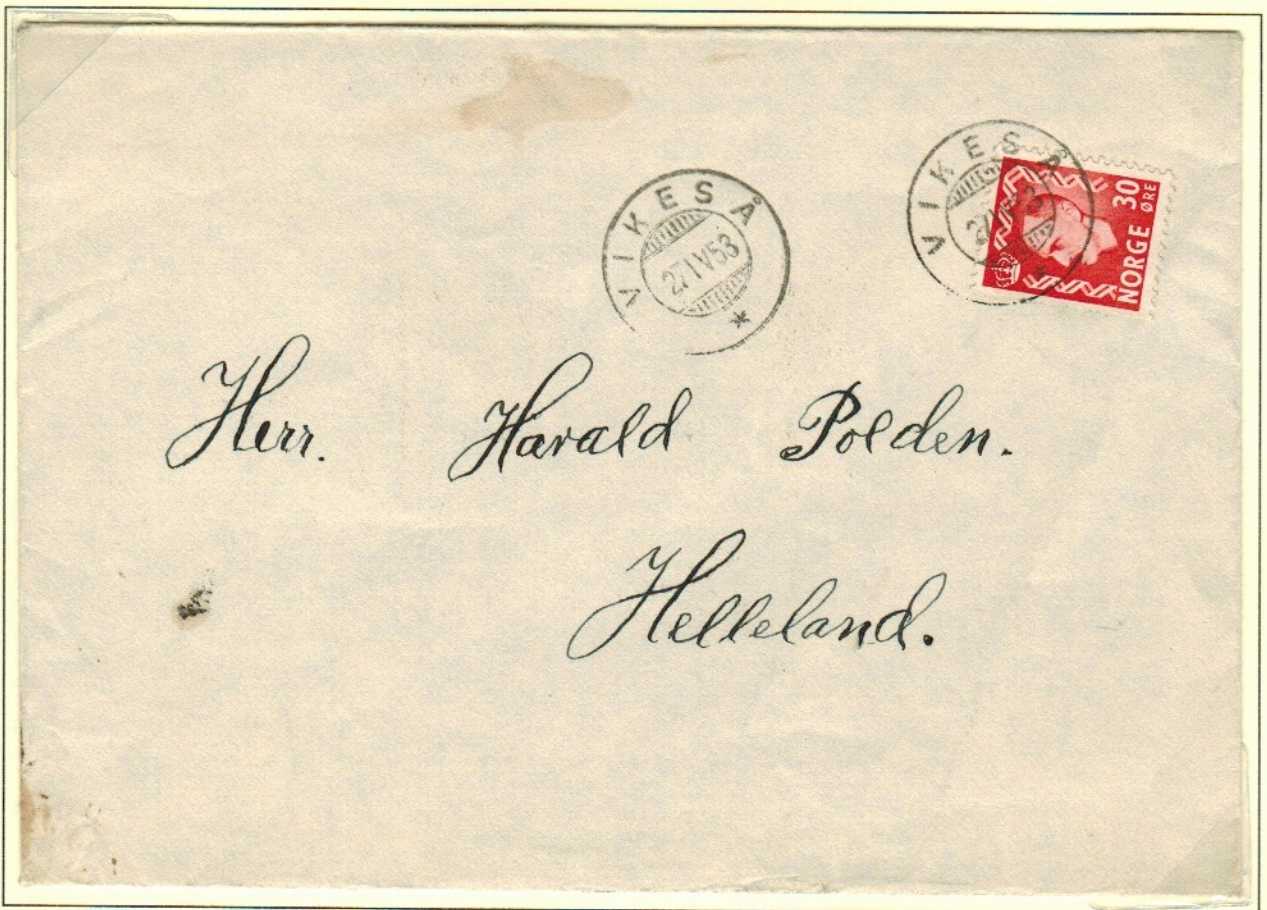 VIKESÅ
27 IV 53
VIKESÅ
27 IV 53
NORGE 30 ØRE
Herr. Harald Polden.
Helleland.